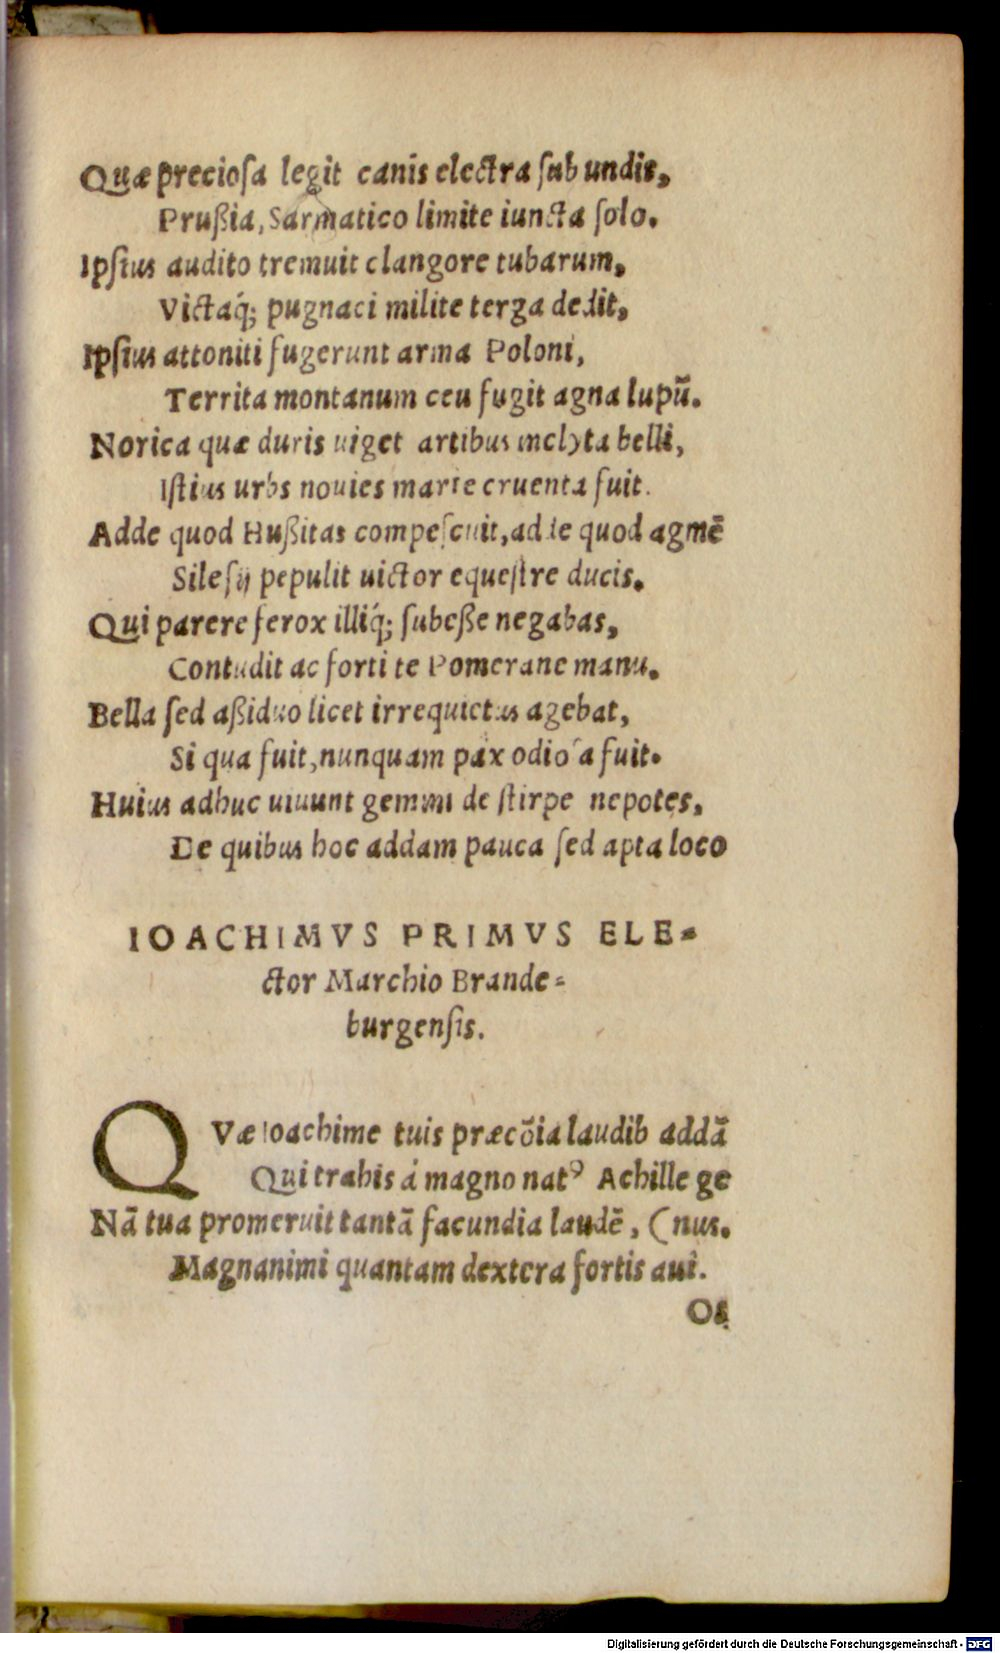 Quæ preciosa legit canis electra sub undis,
Prußia, Sarmatico limite iuncta solo.
Ipsius audito tremuit clangore tubarum,
Victaq́; pugnaci milite terga dedit,
Ipsius attoniti fugerunt arma Poloni,
Territa montanum ceu fugit agna lupū.
Norica quæ duris uiget artibus inclyta belli,
Istius urbs nouies marte cruenta fuit.
Adde quod Hußitas compescuit, adde quod agmē
Silesij pepulit uictor equestre ducis.
Qui parere ferox illiq́; subeße negabas,
Contudit ac forti te Pomerane manu.
Bella sed aßiduo licet irrequietus agebat,
Si qua fuit, nunquam pax odiosa fuit.
Huius adhuc uiuunt gemini de stirpe nepotes,
De quibus hoc addam pauca sed apta loco
IOACHIMVS PRIMVS ELE-
ctor Marchio Brande-
burgensis.
QVæ Ioachime tuis præcōia laudib addā
Qui trahis á magno natꝰ Achille ge
Nā tua promeruit tantā facundia laudē, (nus.
Magnanimi quantam dextera fortis aui.
Os
Digitalisierung gefördert durch die Deutsche Forschungsgemeinschaft - DFG